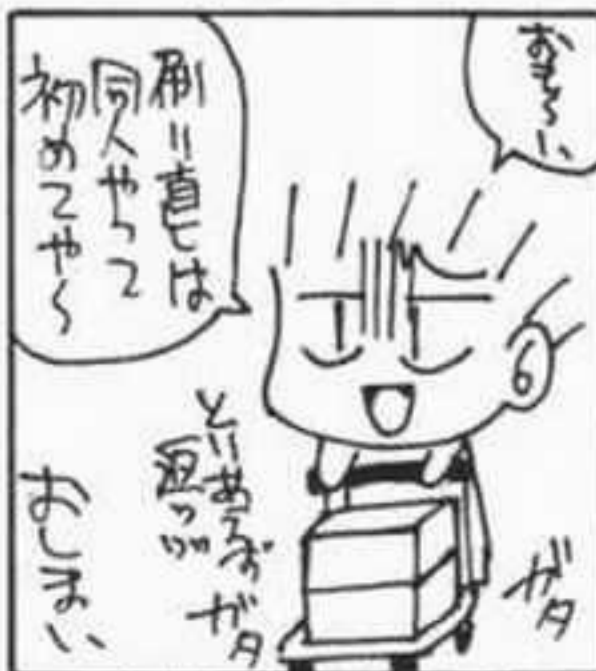 おも〜い
刷り直しは
同人やって
初めてや〜
とりあえず
返ソ
ガタ
ガタ
おしまい